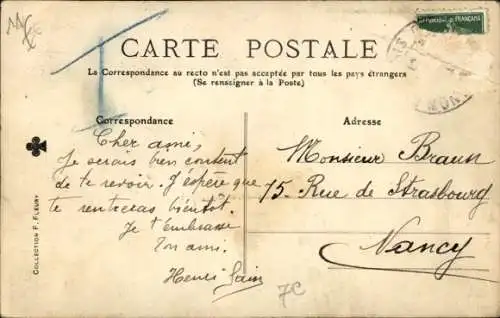 REPUBLIQUE FRANÇAISE
CARTE POSTALE
La Correspondance au recto n'est pas acceptée par tous les pays étrangers
(Se renseigner à la Poste)
Correspondance
Cher ami,
Je serais bien content
de te revoir. J'espère que
te rentreras bientôt.
Je t'embrasse
Ton ami.
Henri
Adresse
Monsieur Braun
75. Rue de Strasbourg
Nancy
COLLECTION F. FLEURY
7C